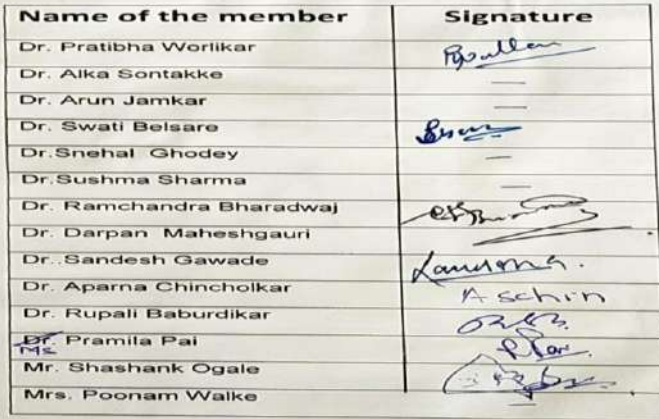 Name of the member Signature
Dr. Pratibha Worlikar
Dr. Alka Sontakke —
Dr. Arun Jamkar —
Dr. Swati Belsare
Dr.Snehal Ghodey —
Dr.Sushma Sharma —
Dr. Ramchandra Bharadwaj
Dr. Darpan Maheshgauri
Dr..Sandesh Gawade
Dr. Aparna Chincholkar A schin
Dr. Rupali Baburdikar
Dr. Pramila Pai
Ms
Mr. Shashank Ogale
Mrs. Poonam Walke —